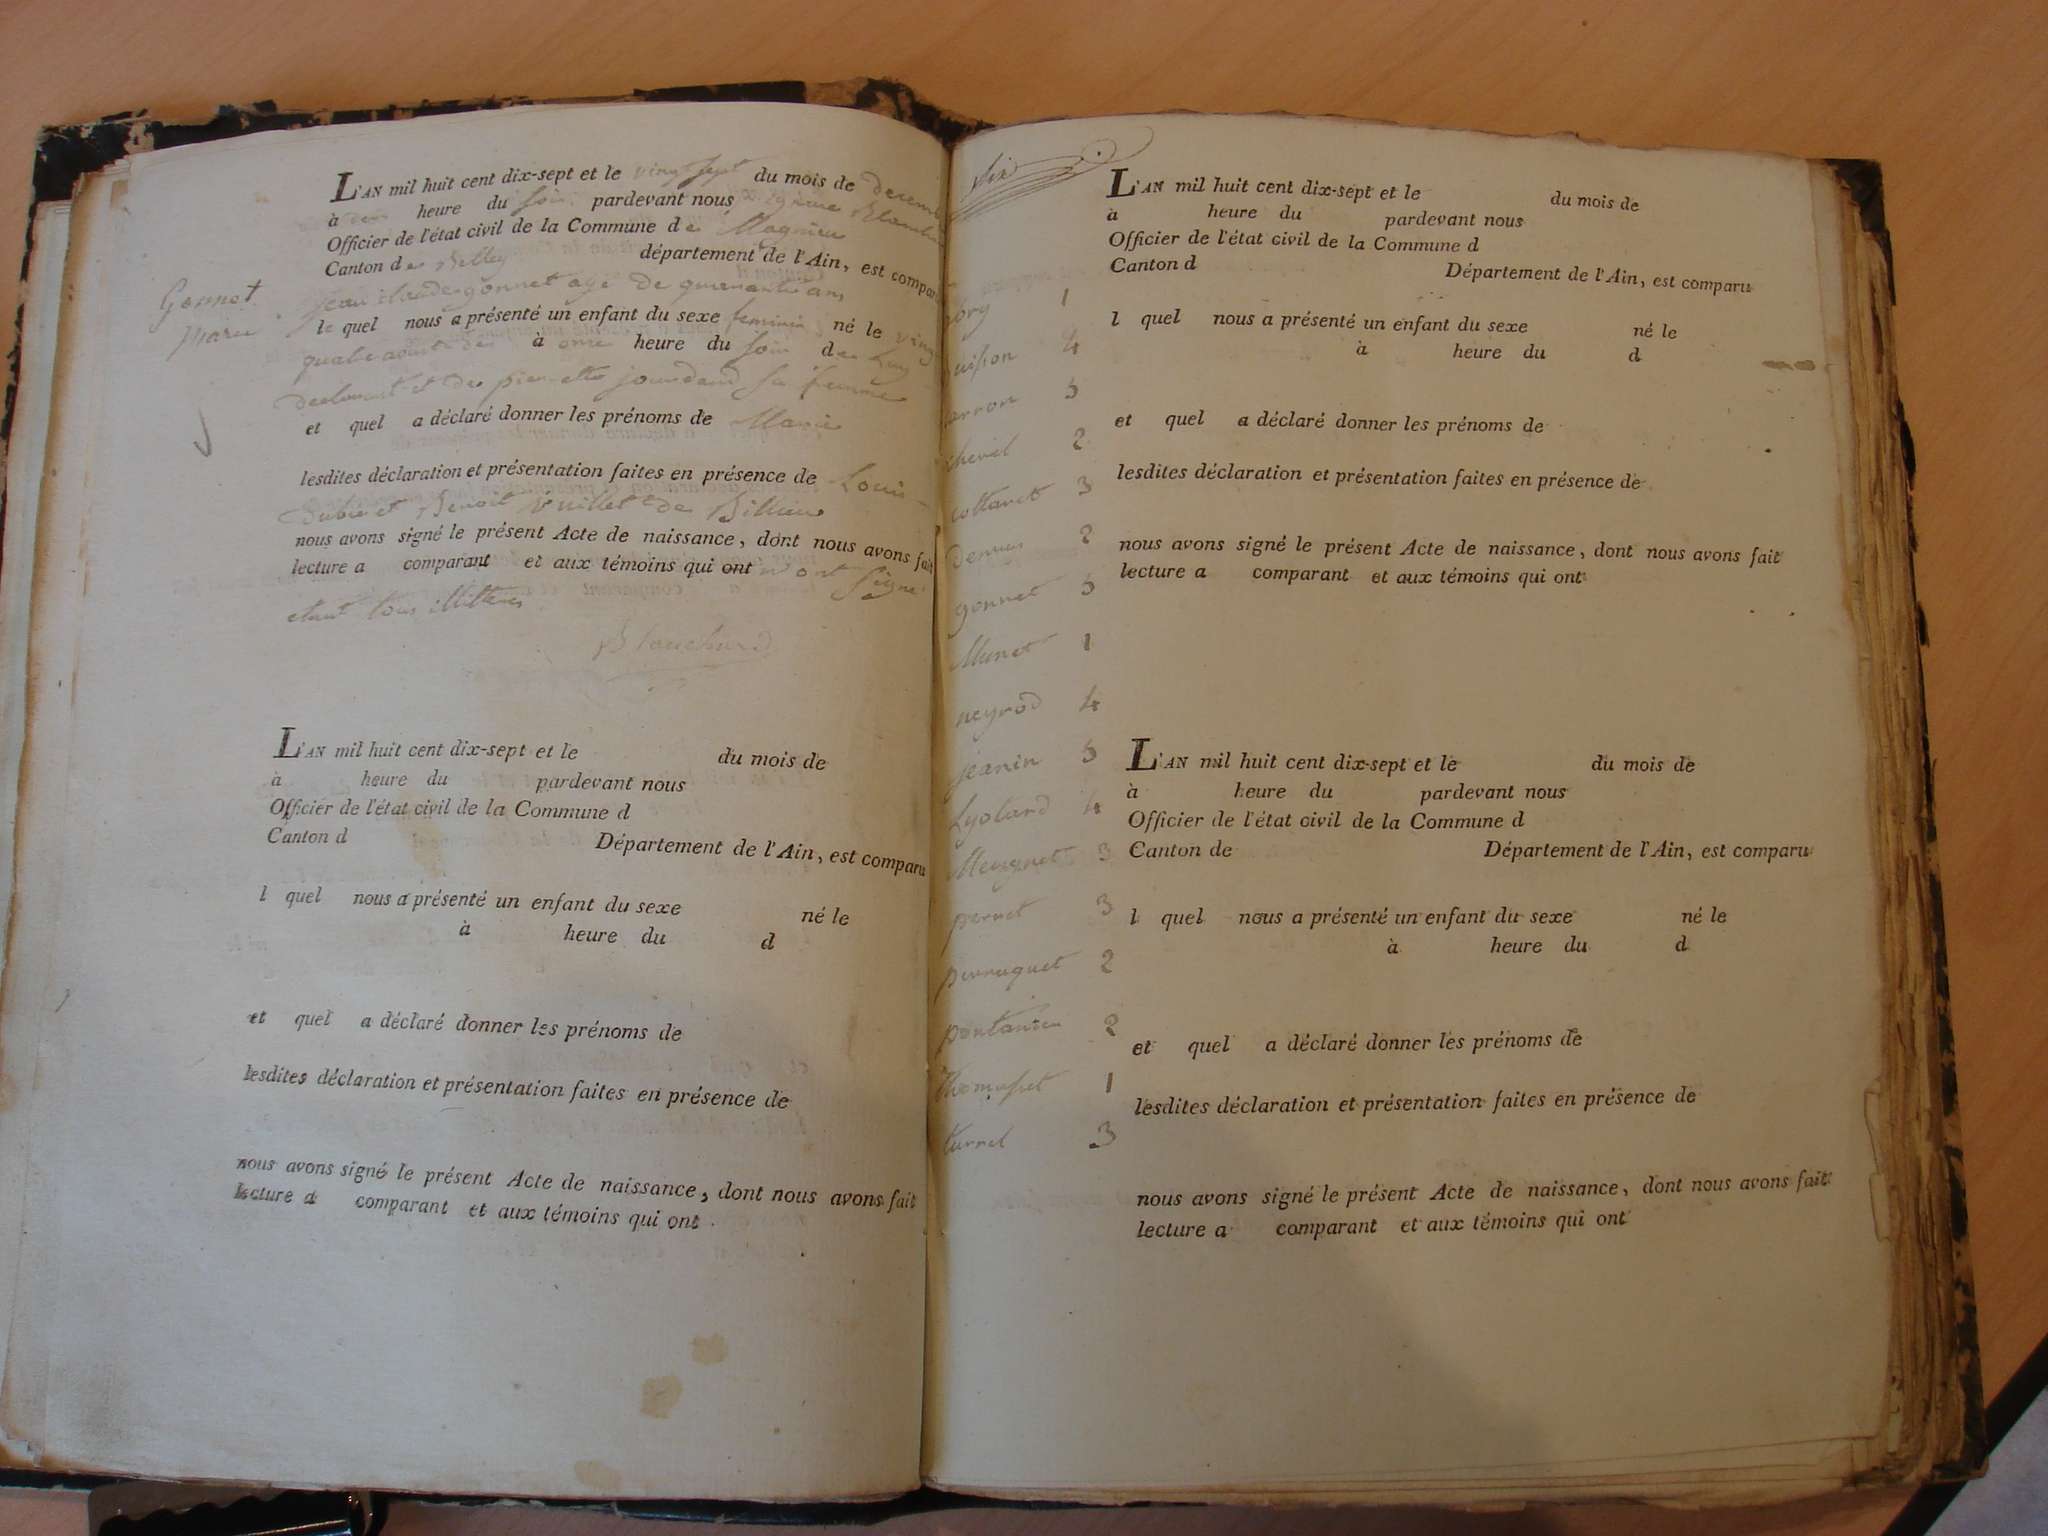 L'AN mil huit cent dix-sept et le vingt sept du mois de decemb
à heure du soir pardevant nous
Officier de l'état civil de la Commune de Magnieu
Canton de Belley département de l'Ain, est comparu
Gonnet
Marie
jean claude gonnet agé de quarante ans
le quel nous a présenté un enfant du sexe feminin né le ving
quatre à onze heure du soir de
et de pierrette jourdand sa femme
et quel a déclaré donner les prénoms de Marie
lesdites déclaration et présentation faites en présence de Louis
Dubie et Benoit vuillet de
nous avons signé le présent Acte de naissance, dont nous avons fait
lecture a comparant et aux témoins qui ont n'ont signé
etant tous
Blanchard
L'AN mil huit cent dix-sept et le du mois de
à heure du pardevant nous
Officier de l'état civil de la Commune d
Canton d Département de l'Ain, est comparu
l quel nous a présenté un enfant du sexe né le
à heure du d
et quel a déclaré donner les prénoms de
lesdites déclaration et présentation faites en présence de
nous avons signé le présent Acte de naissance, dont nous avons fait
lecture a comparant et aux témoins qui ont
dix
1
4
5
2
cottaret 3
2
gonnet 5
Munet 1
neyrod 4
jeanin 5
Lyolard 4
3
pernet 3
perruquet 2
2
thomasset 1
turrel 3
L'AN mil huit cent dix-sept et le du mois de
à heure du pardevant nous
Officier de l'état civil de la Commune d
Canton d Département de l'Ain, est comparu
l quel nous a présenté un enfant du sexe né le
à heure du d
et quel a déclaré donner les prénoms de
lesdites déclaration et présentation faites en présence de
nous avons signé le présent Acte de naissance, dont nous avons fait
lecture a comparant et aux témoins qui ont
L'AN mil huit cent dix-sept et le du mois de
à heure du pardevant nous
Officier de l'état civil de la Commune d
Canton de Département de l'Ain, est comparu
l quel nous a présenté un enfant du sexe né le
à heure du d
et quel a déclaré donner les prénoms de
lesdites déclaration et présentation faites en présence de
nous avons signé le présent Acte de naissance, dont nous avons fait
lecture a comparant et aux témoins qui ont